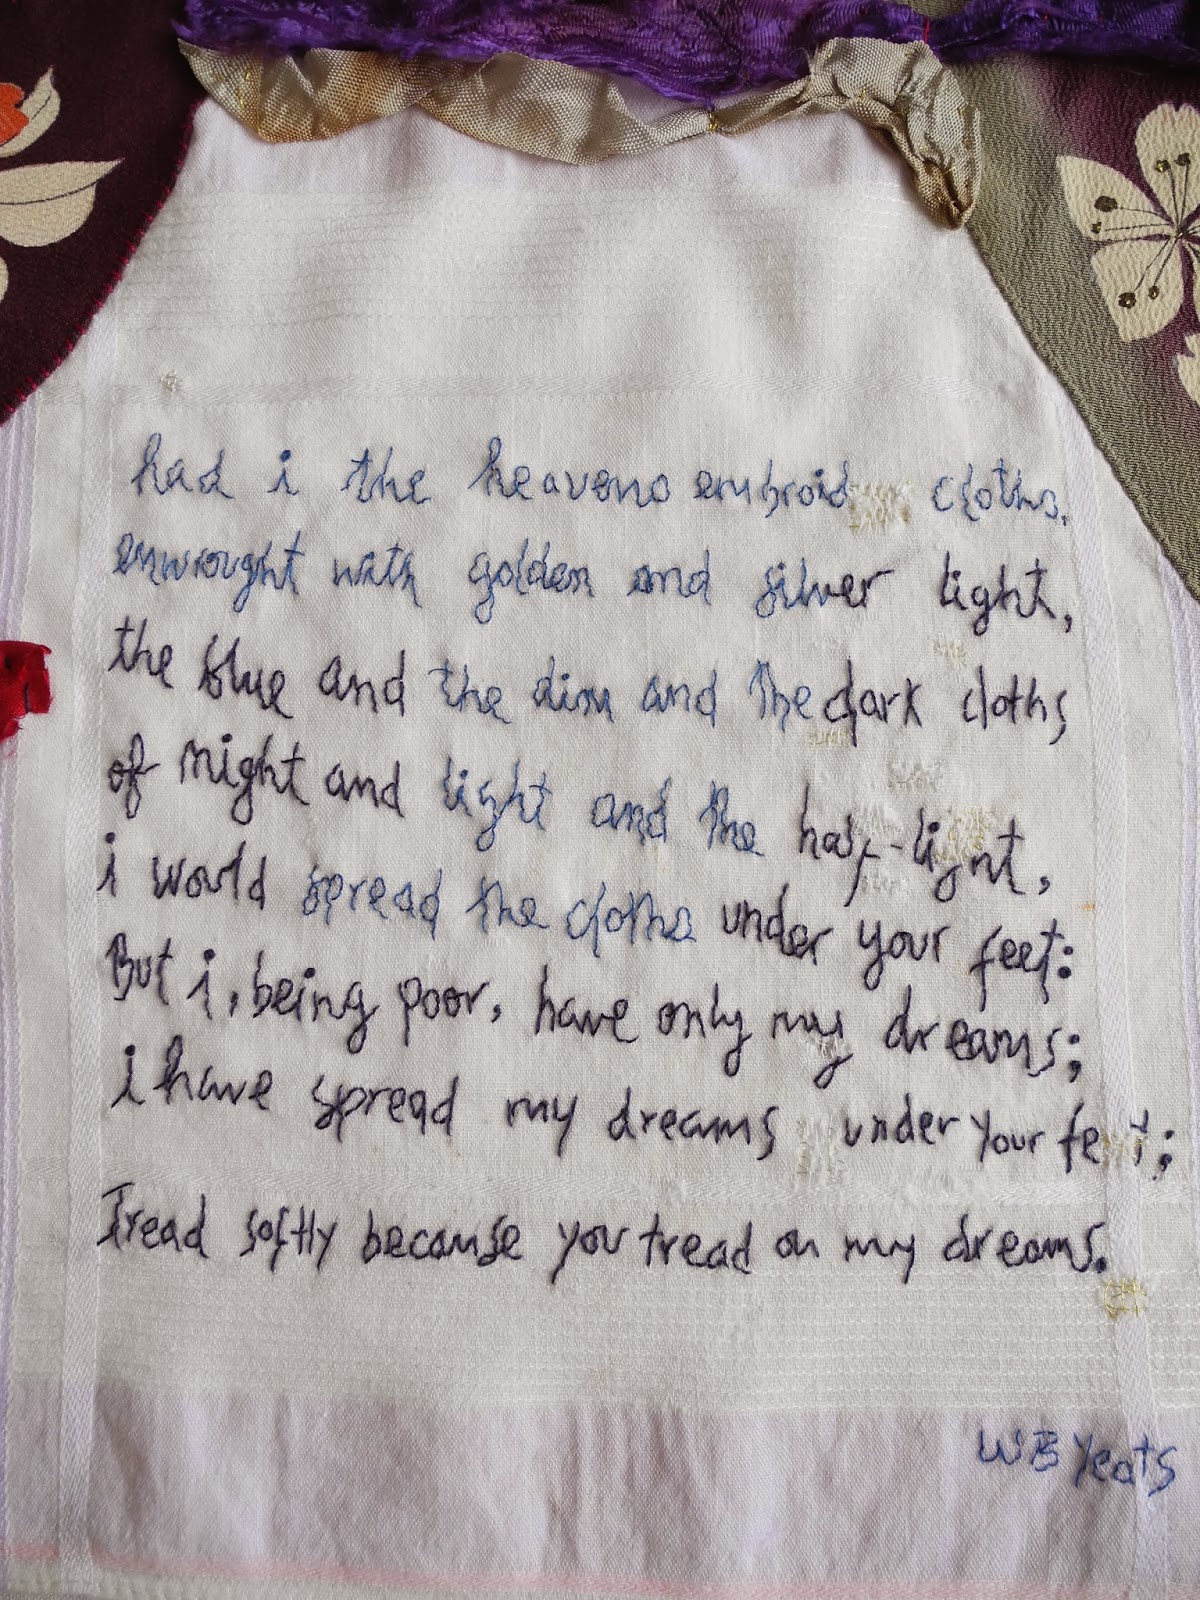 had i the heavens embroid cloths.
enwrought with golden and silver light,
the blue and the dim and the dark cloths
of night and light and the half-light,
i would spread the cloths under your feet:
But i, being poor, have only my dreams;
i have spread my dreams under your feet;
Tread softly because you tread on my dreams.
WB Yeats